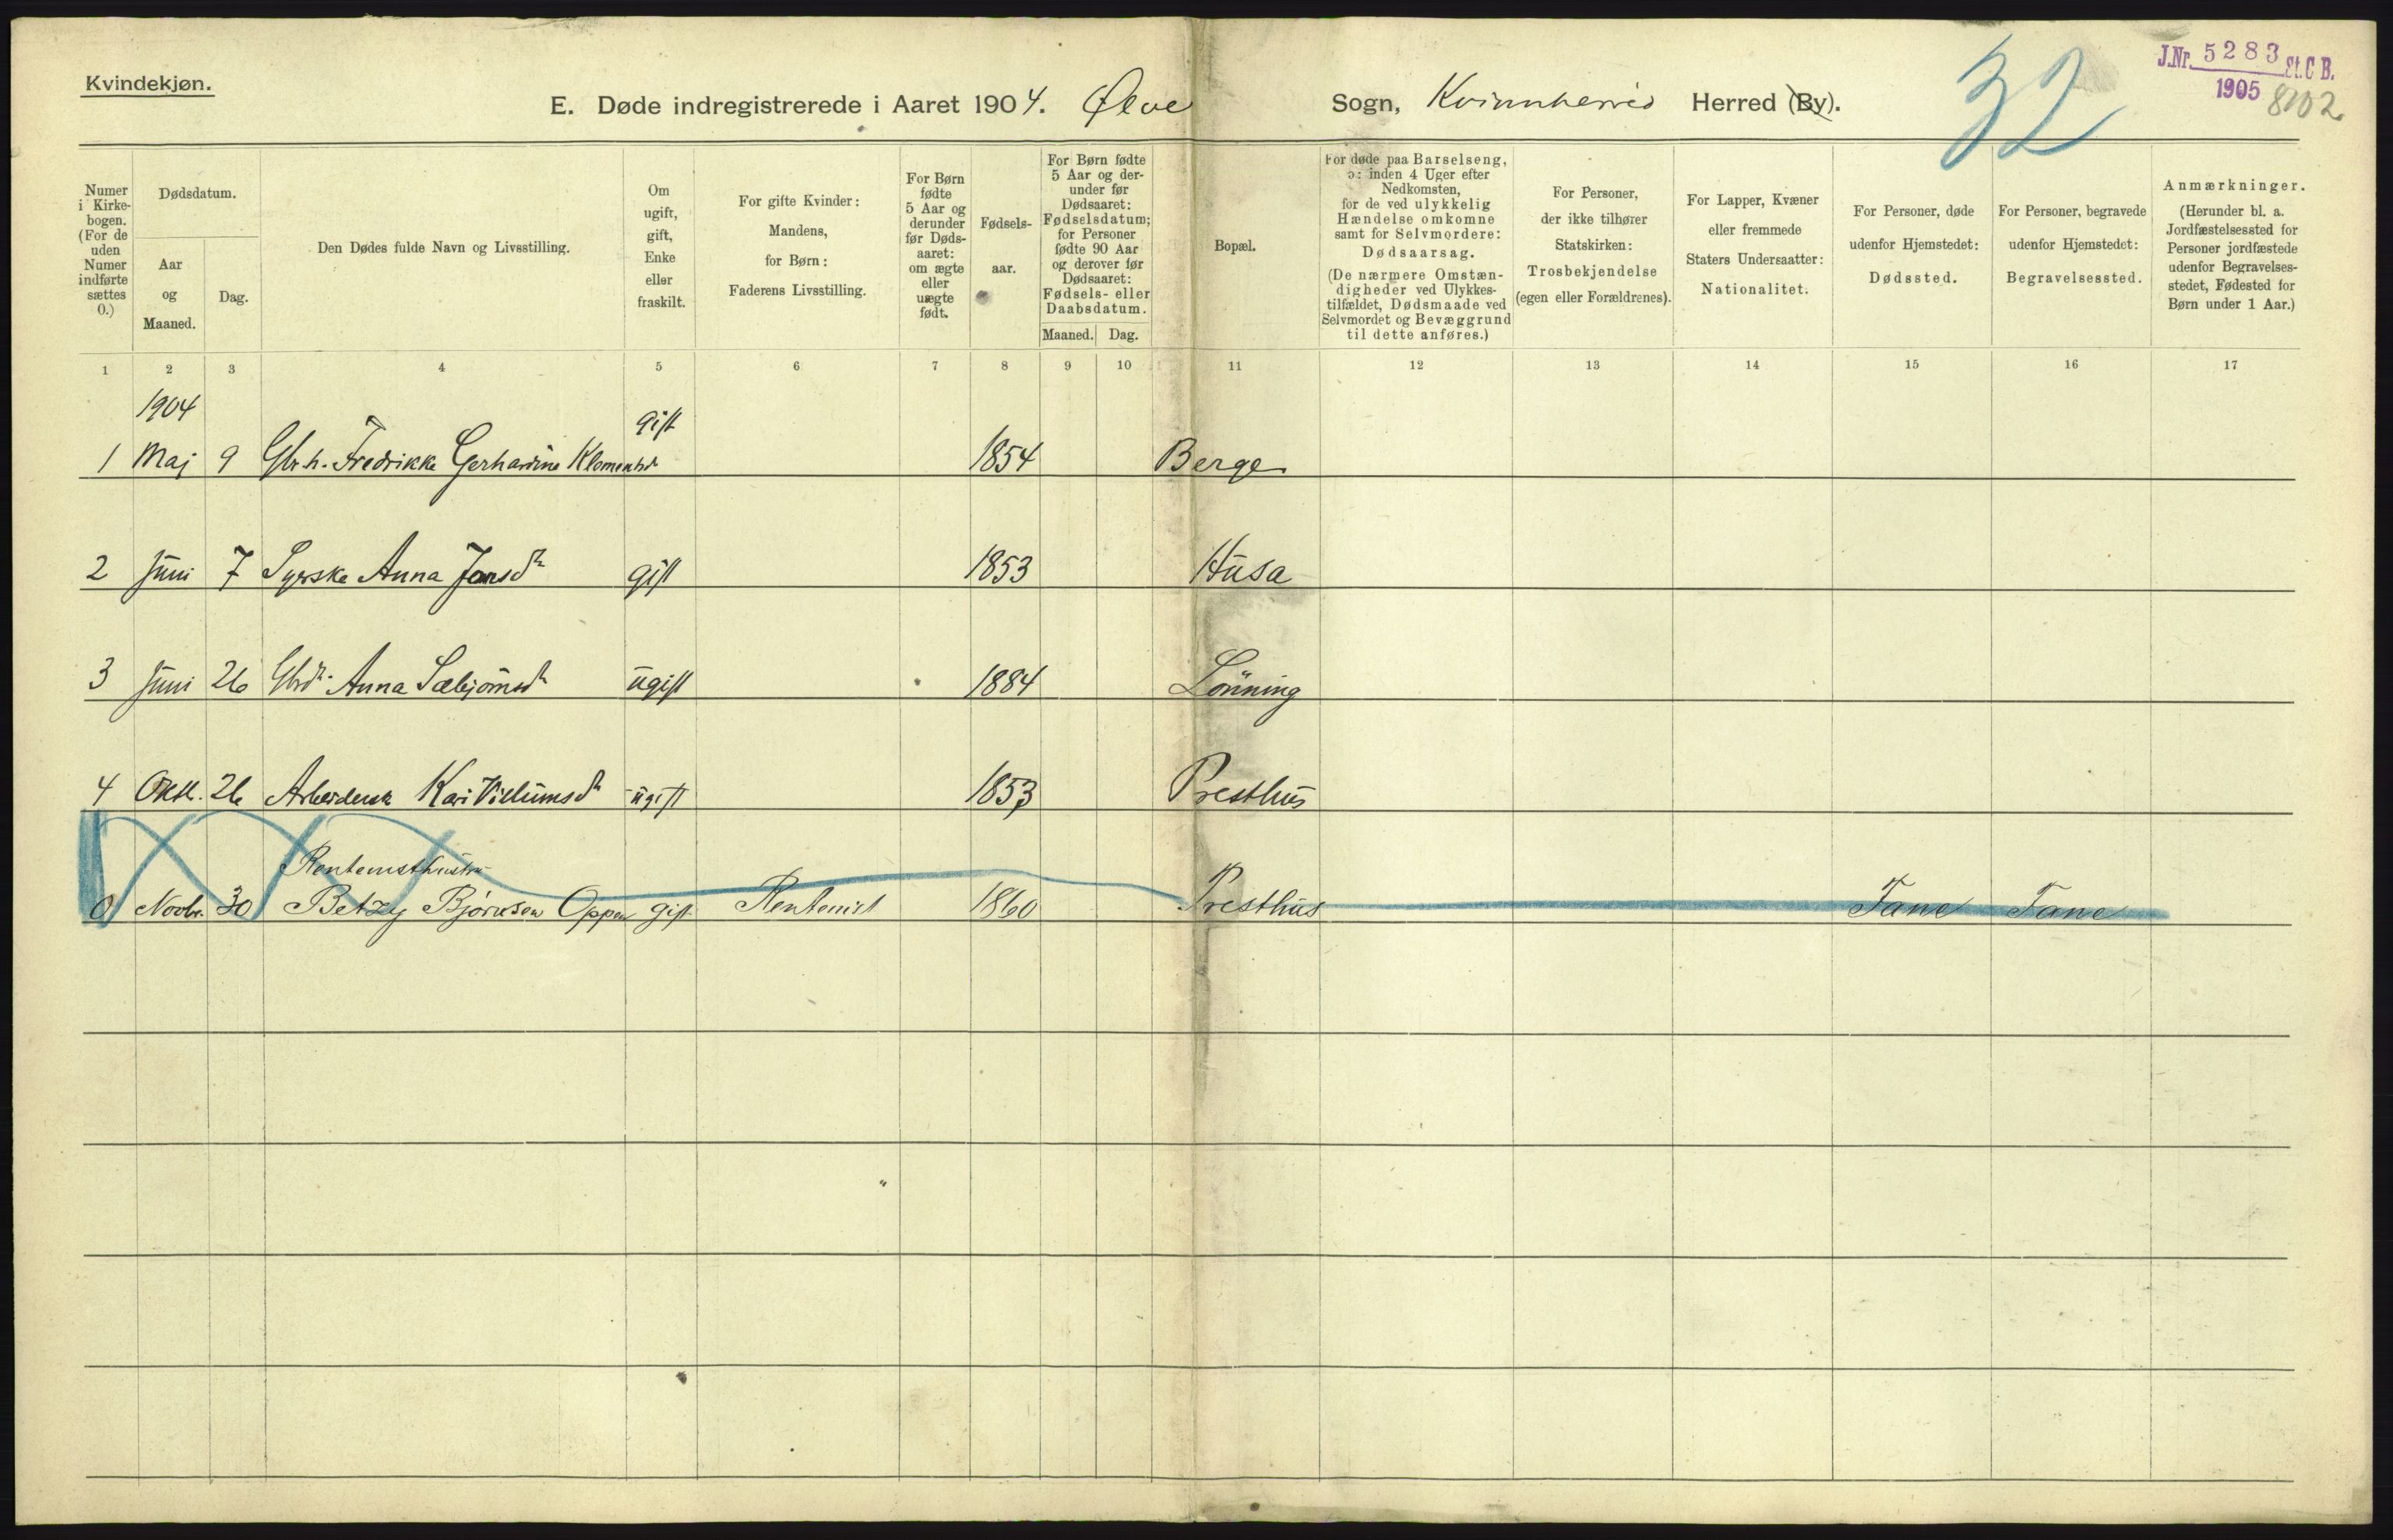 Kvindekjøn.
E. Døde indregistrerede i Aaret 1904. Ølve Sogn, Kvinnherred Herred (By).
32
J.Nr. 5283 St.C B.
1905
8102
Numer i Kirkebogen. (For de uden Numer indførte sættes 0.)
Dødsdatum.
Aar og Maaned.
Dag.
Den Dødes fulde Navn og Livsstilling.
Om ugift, gift, Enke eller fraskilt.
For gifte Kvinder: Mandens, for Børn: Faderens Livsstilling.
For Børn fødte 5 Aar og derunder før Dødsaaret: om ægte eller uægte født.
Fødselsaar.
For Børn fødte 5 Aar og derunder før Dødsaaret: Fødselsdatum; for Personer fødte 90 Aar og derover før Dødsaaret: Fødsels- eller Daabsdatum.
Maaned. Dag.
Bopæl.
For døde paa Barselseng, ɔ: inden 4 Uger efter Nedkomsten, for de ved ulykkelig Hændelse omkomne samt for Selvmordere: Dødsaarsag. (De nærmere Omstændigheder ved Ulykkestilfældet, Dødsmaade ved Selvmordet og Bevæggrund til dette anføres.)
For Personer, der ikke tilhører Statskirken: Trosbekjendelse (egen eller Forældrenes).
For Lapper, Kvæner eller fremmede Staters Undersaatter: Nationalitet.
For Personer, døde udenfor Hjemstedet: Dødssted.
For Personer, begravede udenfor Hjemstedet: Begravelsessted.
Anmærkninger. (Herunder bl. a. Jordfæstelsessted for Personer jordfæstede udenfor Begravelsesstedet, Fødested for Børn under 1 Aar.)
1 2 3 4 5 6 7 8 9 10 11 12 13 14 15 16 17
1904
1 Maj 9 Gbr.h. Fredrikke Gerhardine Klementsd gift 1854 Berge
2 Juni 7 Syerske Anna Jansdtr gift 1853 Husa
3 Juni 26 Gbrdtr. Anna Sæbjørnsdtr ugift 1884 Lönning
4 Okt. 26 Arbeidersk Kari Villumsdtr ugift 1853 Presthus
Rentenisthustru
0 Novbr. 30 Betzy Bjørnsen Oppen gift Rentenist 1860 Presthus Fane Fane